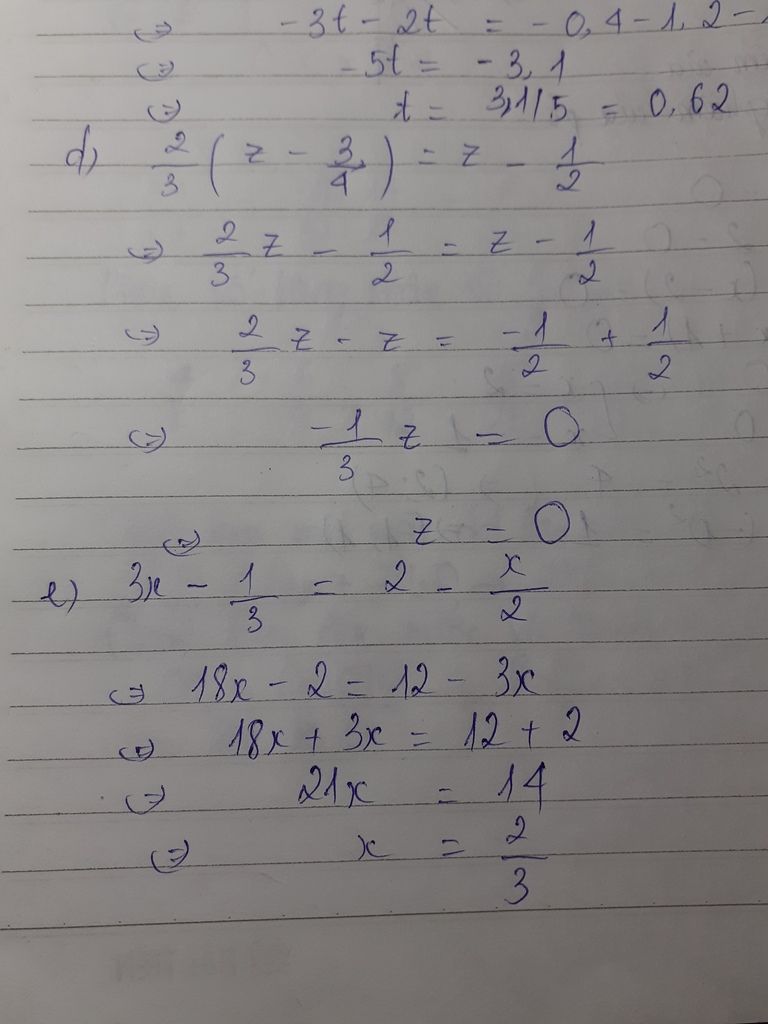 <=> -3t - 2t = - 0,4 - 1,2 -
<=> -5t = -3,1
<=> t = 3,1/5 = 0,62
d) 2/3 ( z - 3/4 ) = z - 1/2
<=> 2/3 z - 1/2 = z - 1/2
<=> 2/3 z - z = -1/2 + 1/2
<=> -1/3 z = 0
<=> z = 0
e) 3x - 1/3 = 2 - x/2
<=> 18x - 2 = 12 - 3x
<=> 18x + 3x = 12 + 2
<=> 21x = 14
<=> x = 2/3